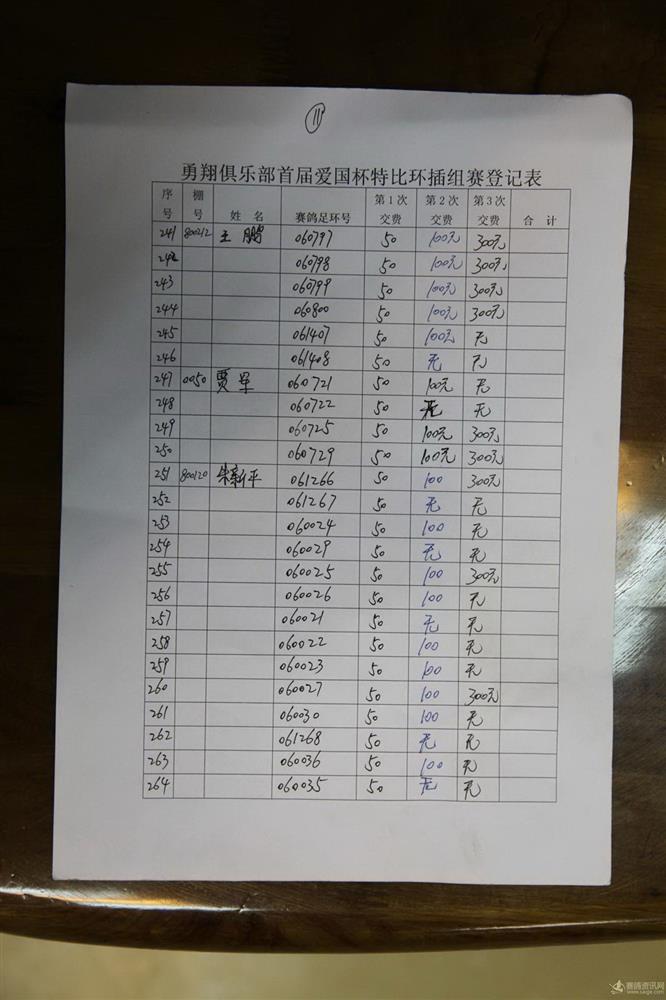 11
勇翔俱乐部首届爱国杯特比环插组赛登记表
序号 棚号 姓 名 赛鸽足环号 第1次交费 第2次交费 第3次交费 合 计
241 800212 王鹏 060797 50 100元 300元
242 060798 50 100元 300元
243 060799 50 100元 300元
244 060800 50 100元 300元
245 061407 50 100元 无
246 061408 50 无 无
247 0050 贾军 060721 50 100元 无
248 060722 50 无 无
249 060725 50 100元 300元
250 060729 50 100元 300元
251 800120 朱新平 061266 50 100 300元
252 061267 50 无 无
253 060024 50 100 无
254 060029 50 无 无
255 060025 50 100 300元
256 060026 50 100 无
257 060021 50 无 无
258 060022 50 100 无
259 060023 50 100 无
260 060027 50 100 300元
261 060030 50 100 无
262 061268 50 无 无
263 060036 50 100 无
264 060035 50 无 无
赛鸽资讯网
www.saige.com